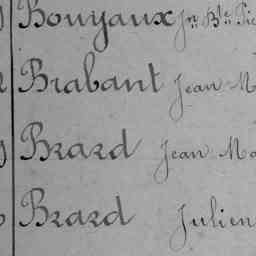 Bouyaux Jn Bte Pie
Brabant Jean M
Brard Jean Ma
Brard Julien